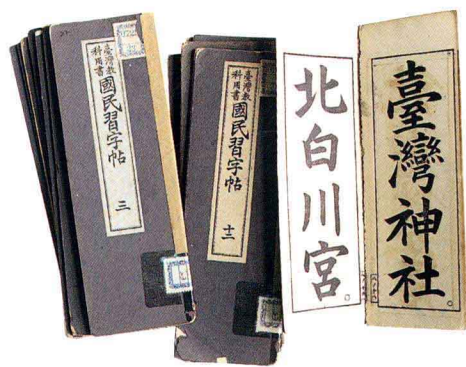 臺灣教科用書
國民習字帖
三
臺灣教科用書
國民習字帖
十二
北白川宮。
臺灣神社。